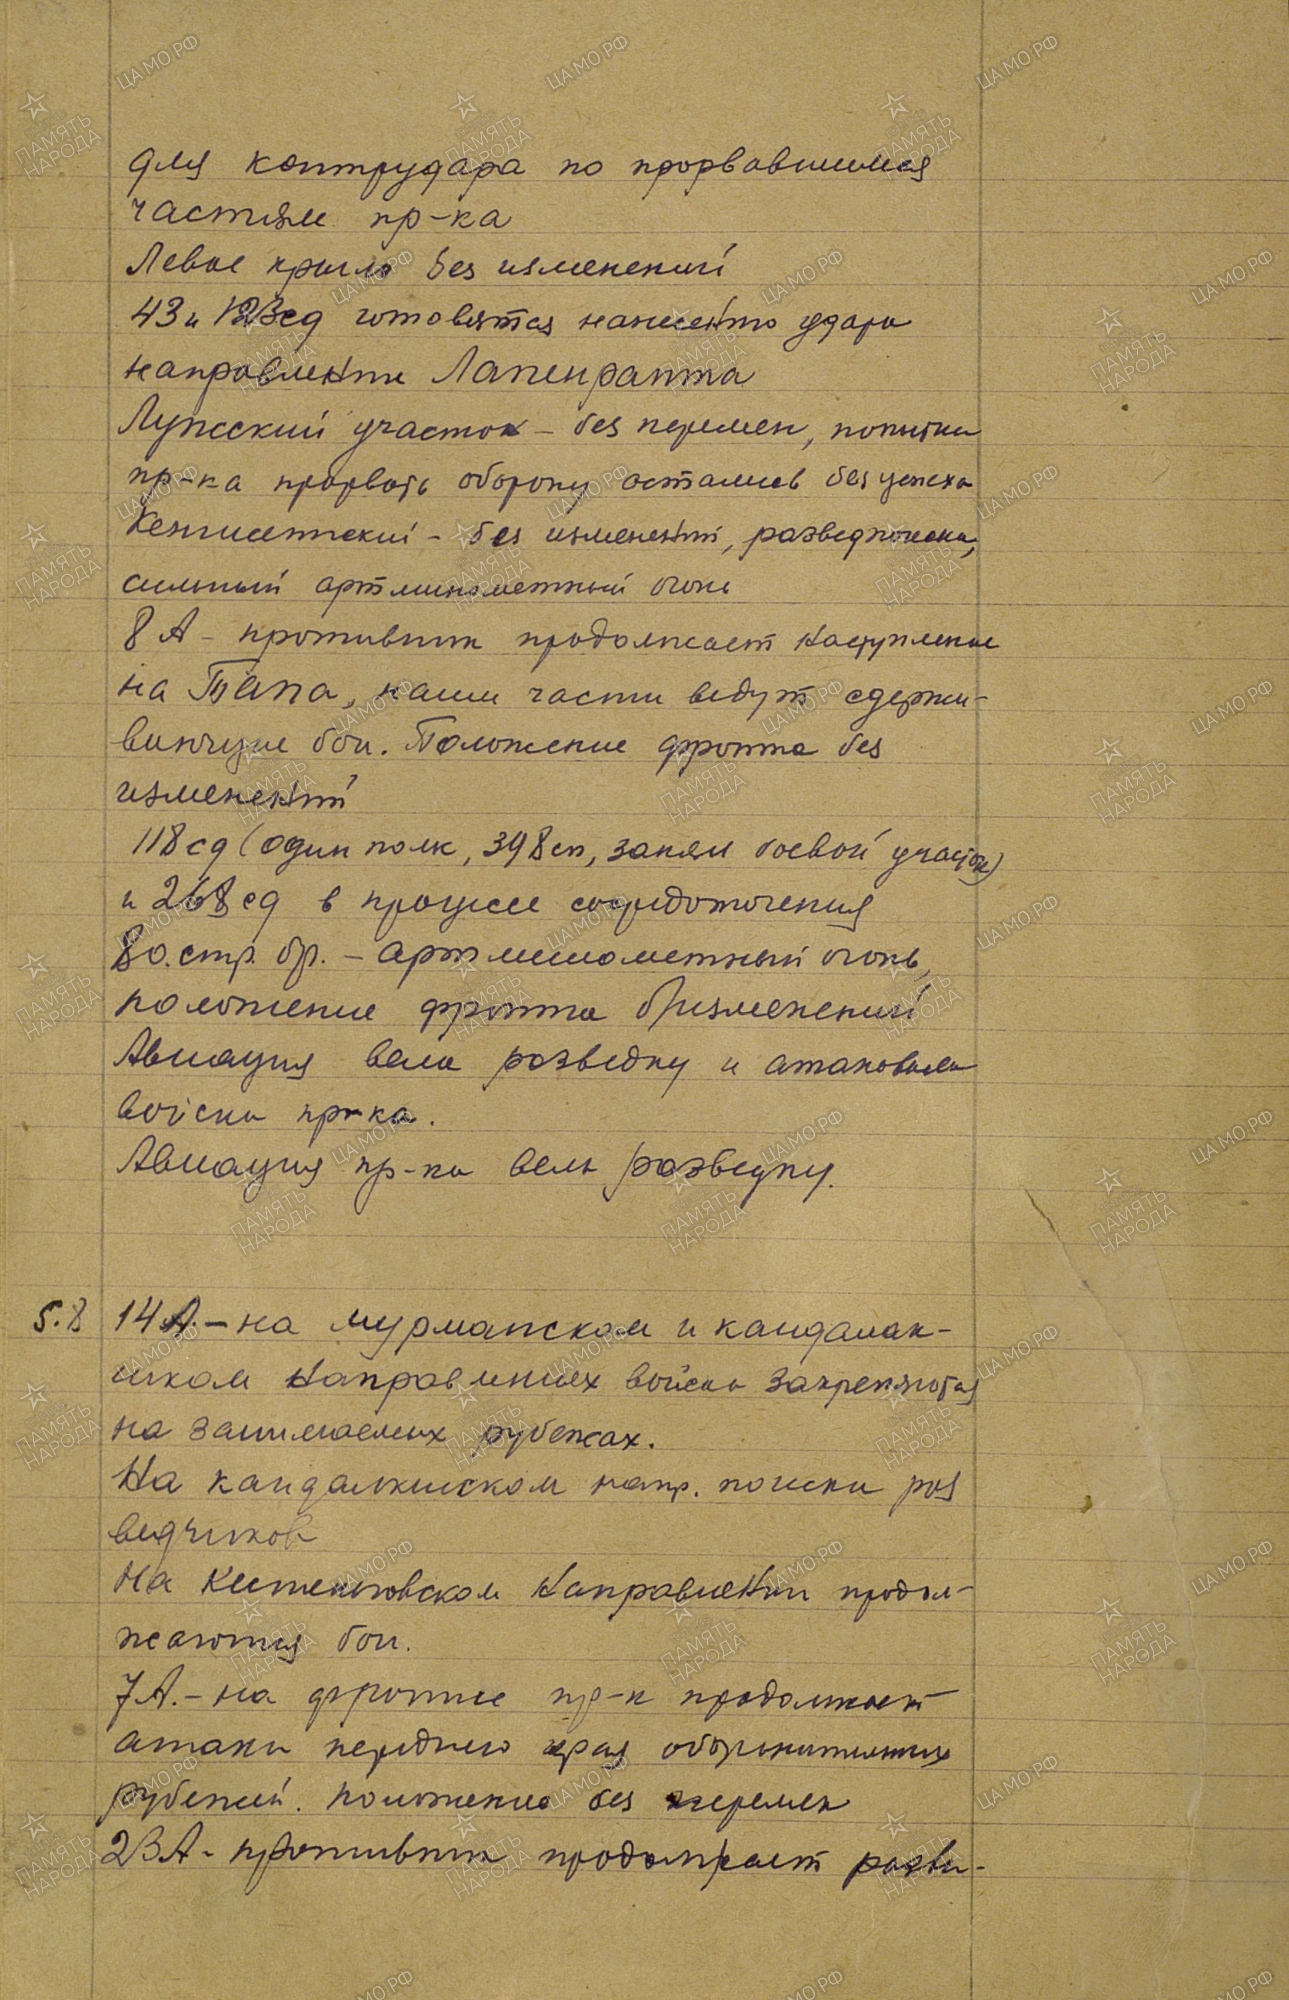 для контрудара по прорвавшимся
частям пр-ка
Левое крыло без изменений
43 и 123 сд готовятся нанести удары
направлении Лапенранта
Лужский участок - без перемен, попытки
пр-ка прорвать оборону остались без успеха
Кенгисепский - без изменений, разведпоиски,
сильный артминометный огонь
8 А - противник продолжает наступление
на Тапа, наши части ведут сдержи-
вающие бои. Положение фронта без
изменений
118 сд (один полк, 398 сп, занял боевой участок)
и 268 сд в процессе сосредоточения
8 о. стр. бр. - артминометный огонь,
положение фронта без изменений
Авиация вела разведку и атаковала
войска пр-ка.
Авиация пр-ка вела разведку.
5.8 14 А. - на мурманском и кандалак-
шском направлениях войска закрепляются
на занимаемых рубежах.
На кандалакшском напр. поиски раз
ведчиков
На Кестеньговском направлении продол-
жаются бои.
7 А. - на фронте пр-к продолжает
атаки переднего края оборонительных
рубежей. Положение без перемен
23 А - противник продолжает разви-